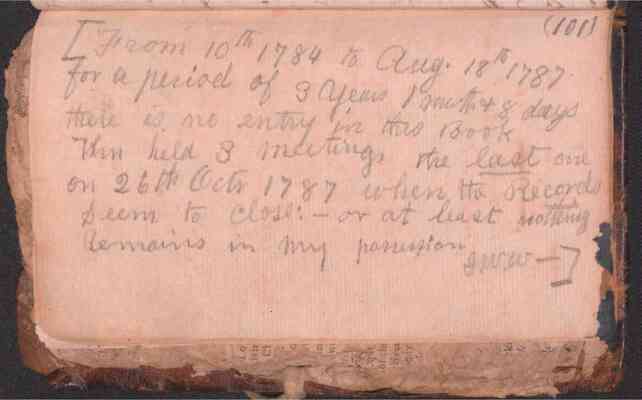 (101)
[From 10th 1784 to Aug. 18th 1787.
for a period of 3 Years 1 month & 8 days
there is no entry in this Book
then held 3 meetings the last one
on 26th Octr 1787 when the Records
seem to close: – or at least nothing
remains in my possession
JWW —]